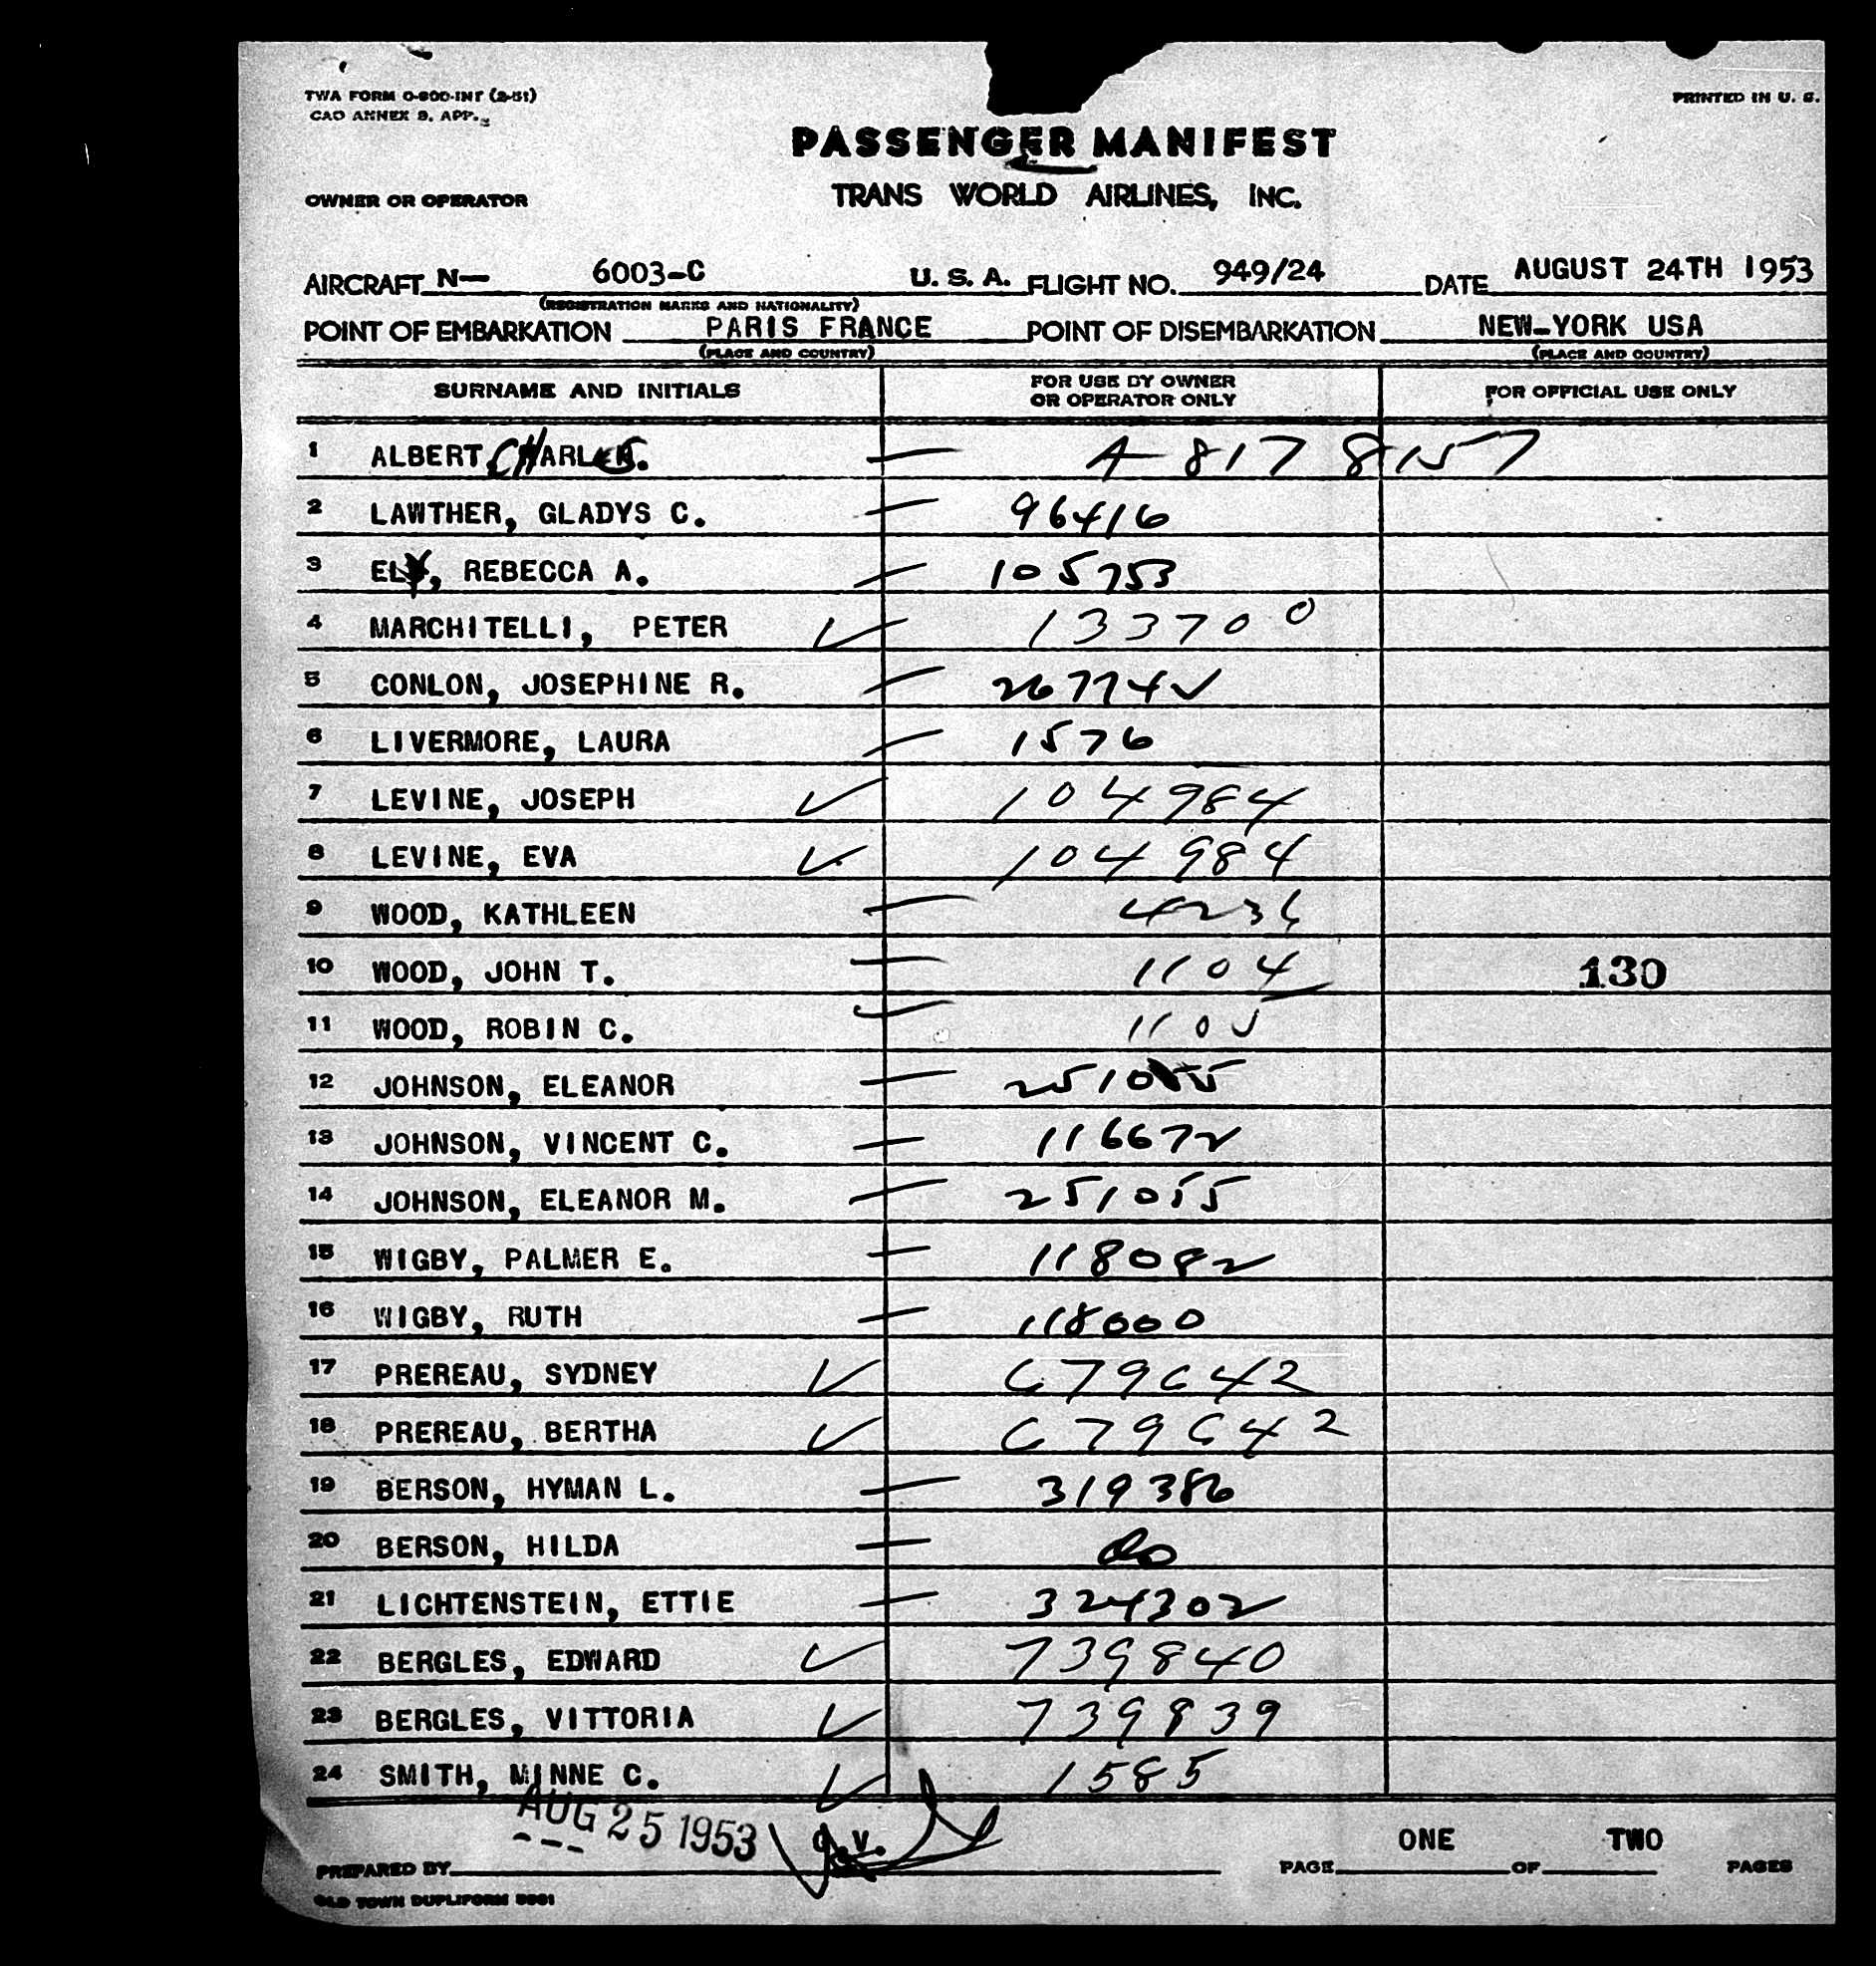 TWA FORM O-800-INT (2-51)
CAO ANNEX 9. APP.
PRINTED IN U. S.
PASSENGER MANIFEST
OWNER OR OPERATOR
TRANS WORLD AIRLINES, INC.
AIRCRAFT N— 6003-C U. S. A. FLIGHT NO. 949/24 DATE AUGUST 24TH 1953
(REGISTRATION MARKS AND NATIONALITY)
POINT OF EMBARKATION PARIS FRANCE POINT OF DISEMBARKATION NEW-YORK USA
(PLACE AND COUNTRY) (PLACE AND COUNTRY)
SURNAME AND INITIALS FOR USE BY OWNER OR OPERATOR ONLY FOR OFFICIAL USE ONLY
1 ALBERT, CHARLES. — A 8178157
2 LAWTHER, GLADYS C. — 96416
3 ELY, REBECCA A. — 105753
4 MARCHITELLI, PETER ✓ 133700
5 CONLON, JOSEPHINE R. — 267742
6 LIVERMORE, LAURA — 1576
7 LEVINE, JOSEPH ✓ 104984
8 LEVINE, EVA ✓ 104984
9 WOOD, KATHLEEN — 4236
10 WOOD, JOHN T. — 1104 130
11 WOOD, ROBIN C. — 1105
12 JOHNSON, ELEANOR — 251055
13 JOHNSON, VINCENT C. — 116672
14 JOHNSON, ELEANOR M. — 251055
15 WIGBY, PALMER E. — 118082
16 WIGBY, RUTH — 118000
17 PREREAU, SYDNEY ✓ 679642
18 PREREAU, BERTHA ✓ 679642
19 BERSON, HYMAN L. — 319386
20 BERSON, HILDA — do
21 LICHTENSTEIN, ETTIE — 324302
22 BERGLES, EDWARD ✓ 739840
23 BERGLES, VITTORIA ✓ 739839
24 SMITH, MINNE C. ✓ 1585
AUG 25 1953
PREPARED BY G.V. PAGE ONE OF TWO PAGES
OLD TOWN DUPLIFORM